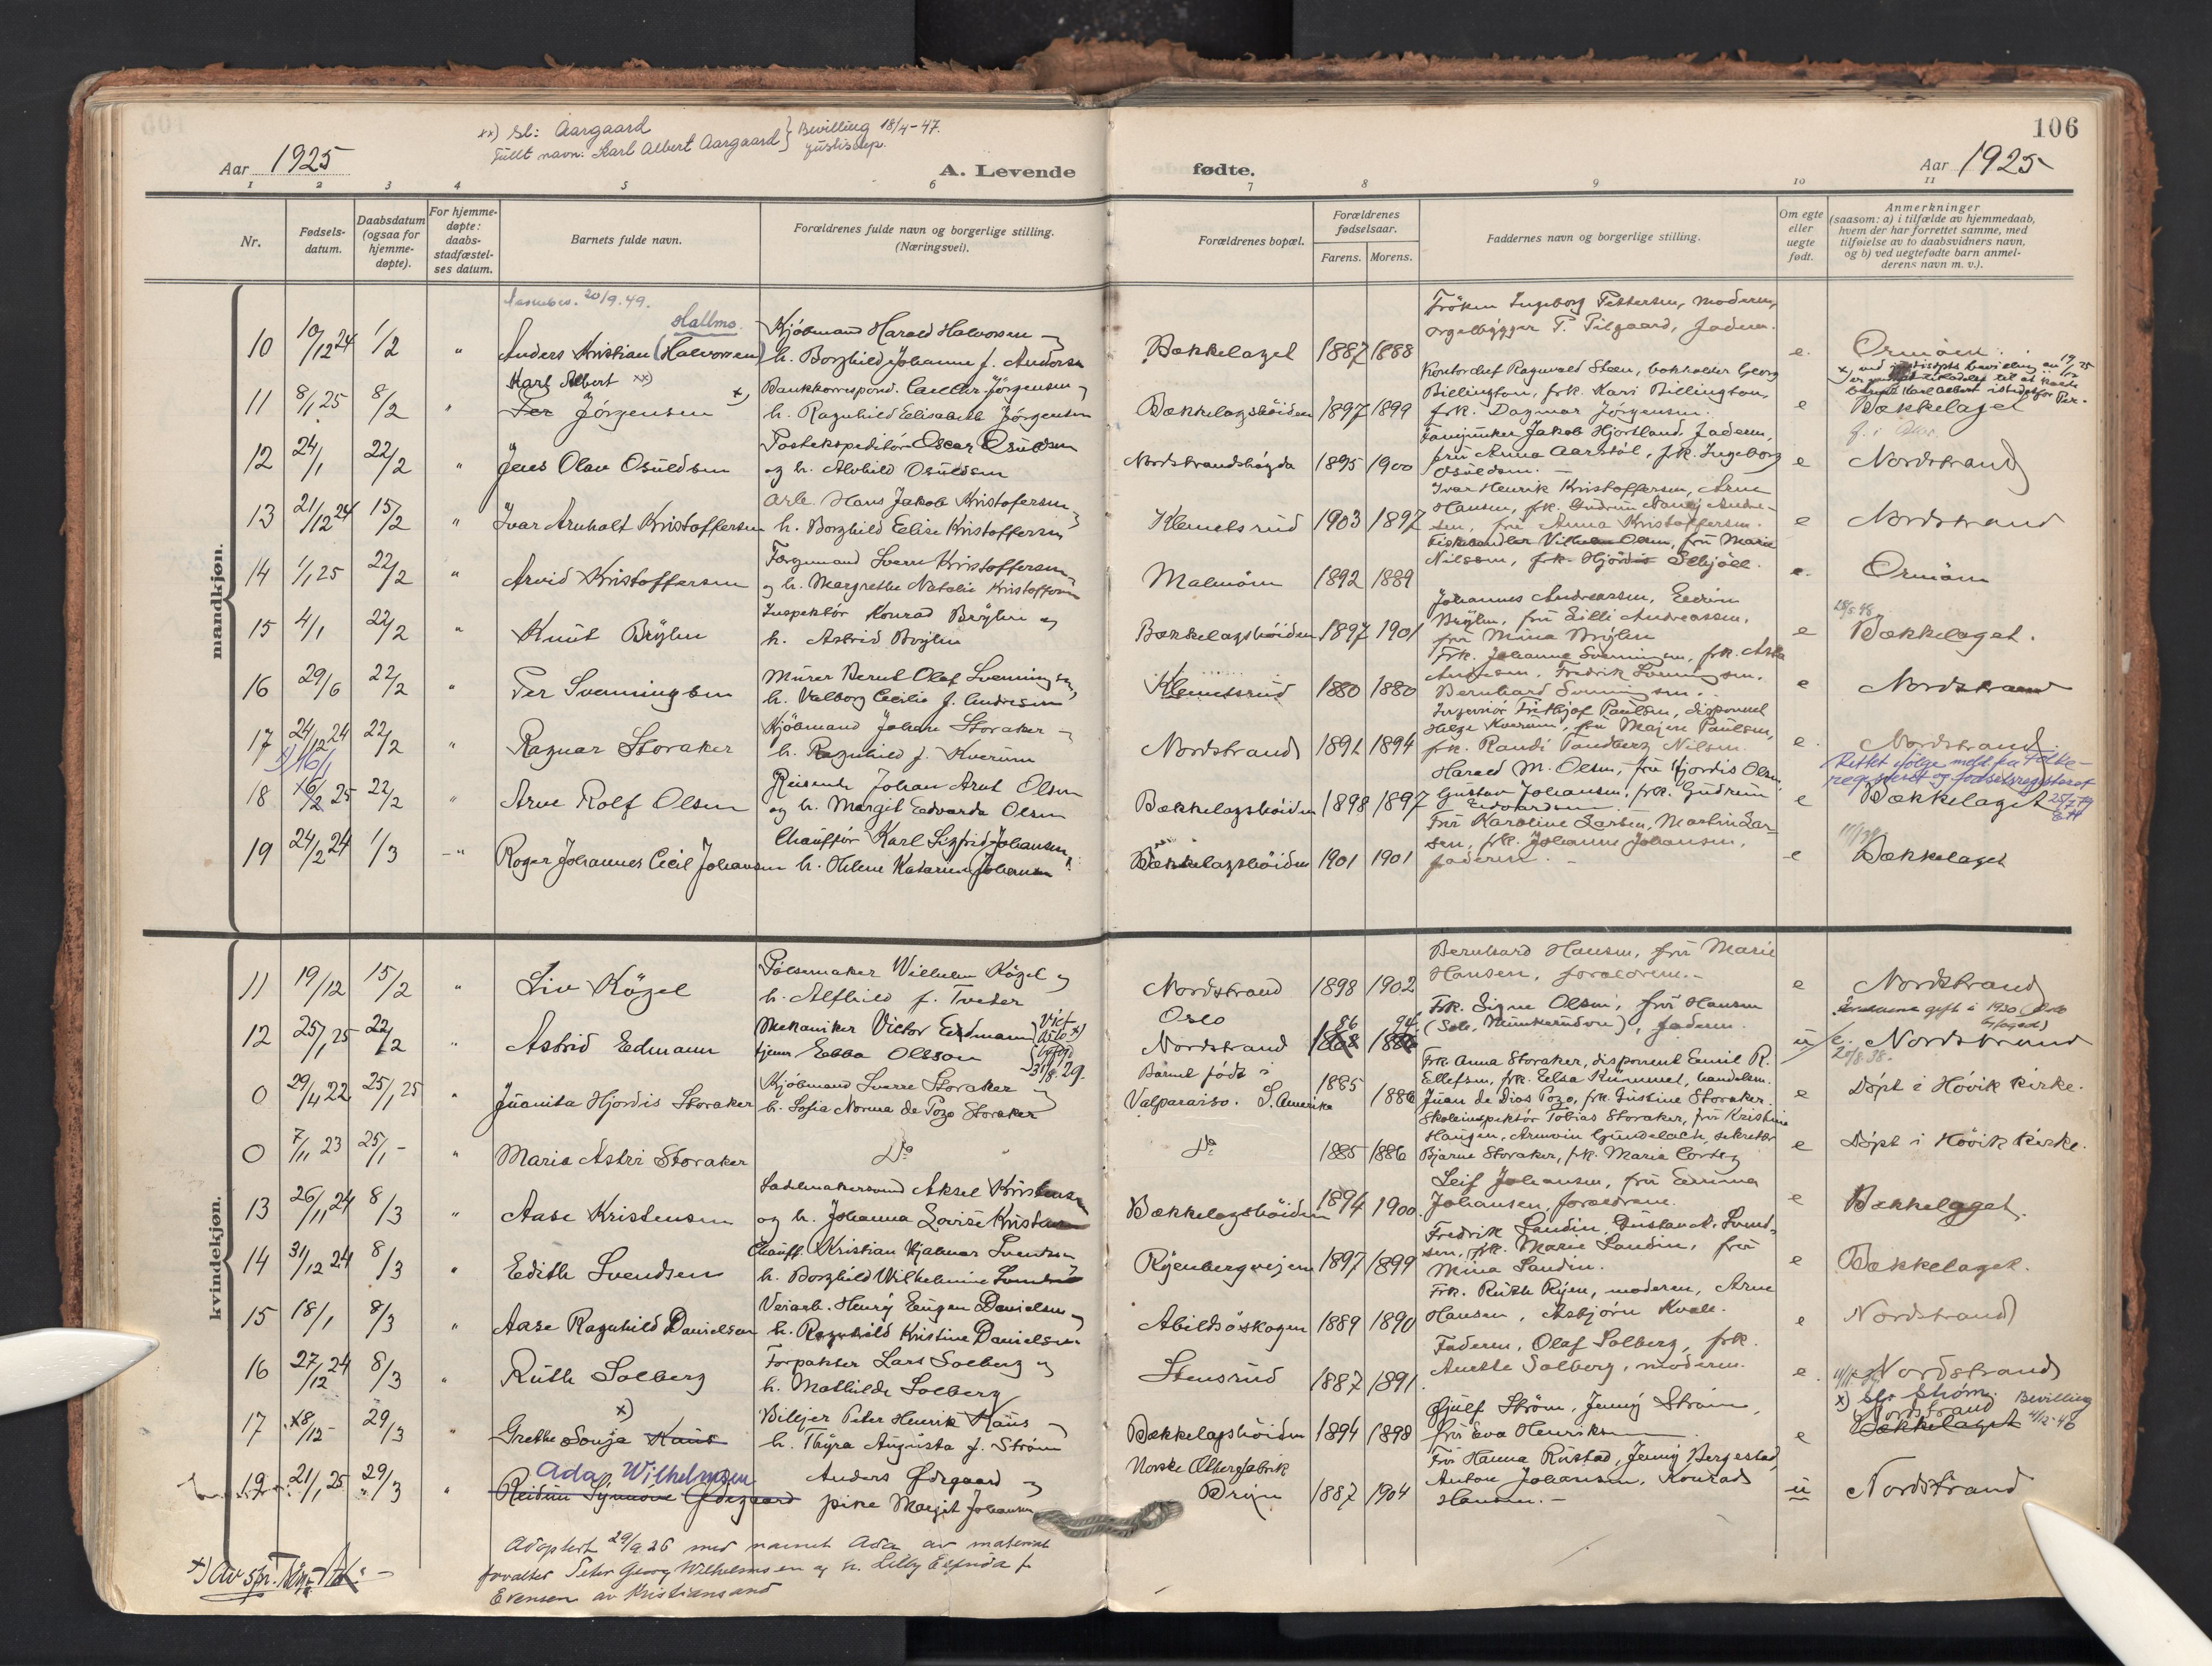 106
xx) Sl: Aargaard } Bevilling 18/4-47.
Fullt navn: Karl Albert Aargaard } Justisdep.
Aar 1925
A. Levende fødte.
Aar 1925
1 2 3 4 5 6 7 8 9 10 11
Nr. Fødsels-datum. Daabsdatum (ogsaa for hjemme-døpte). For hjemme-døpte: daabs-stadfæstel-ses datum. Barnets fulde navn. Forældrenes fulde navn og borgerlige stilling. (Næringsvei). Forældrenes bopæl. Forældrenes fødselsaar. Farens. Morens. Faddernes navn og borgerlige stilling. Om egte eller uegte født. Anmerkninger (saasom: a) i tilfælde av hjemmedaab, hvem der har forrettet samme, med tilføielse av to daabsvidners navn, og b) ved uegtefødte barn anmel-derens navn m. v.).
mandkjøn.
20/9.49.
Hallmo.
10 10/12 24 1/2 " Anders Kristian (Halvorsen) Kjøbmand Harald Halvorsen og h. Borghild Johanne f. Andersen Bækkelaget 1887 1888 Frøken Ingeborg Pettersen, moderen, orgelbygger T. Pilgaard, faderen. e. Ormøen.
Karl Albert xx)
11 8/1 25 8/2 " Per Jørgensen x) Bankkorrespond. Jørgensen og h. Ragnhild Elisabeth Jørgensen Bækkelagshøiden 1897 1899 Kontorchef Ragnvald Steen, bokholder Georg Billington, frk. Kari Billington, frk. Dagmar Jørgensen. e Bækkelaget
12 24/1 22/2 " Jens Olav Osuldsen Postekspeditør Oscar Osuldsen og h. Alvhild Osuldsen Nordstrandshøgda 1895 1900 Fanejunker Jakob Hjortland, faderen, fru Anna Aarstøl, frk. Ingeborg Osuldsen. e Nordstrand
13 21/12 24 15/2 " Ivar Arnholt Kristoffersen Arb. Hans Jakob Kristofersen og h. Borghild Elise Kristoffersen Klemetsrud 1903 1897 Ivar Henrik Kristoffersen, Arne Hansen, frk. Gudrun Nancy Andresen, fru Anna Kristoffersen. e Nordstrand
14 1/1 25 22/2 " Arvid Kristoffersen Færgemand Sverre Kristoffersen og h. Margrethe Natalie Kristoffersen Malmøen 1892 1889 Fiskehandler Vilhelm Olsen, fru Marie Nilssen, frk. Hjørdis e. Ormøen
15 4/1 22/2 " Knut Brylin Inspektør Konrad Brylin og h. Astrid Brylin Bækkelagshøiden 1897 1901 Johannes Andreassen, Edvin Brylin, fru Lilli Andreassen, fru Mina Brylin e Bækkelaget.
16 29/6 22/2 " Per Svenningsen Murer Bernt Olaf Svenningsen, h. Valborg Cecilie f. Andresen Klemetsrud 1880 1880 Frk. Johanne Svenningsen, frk. Asta Andresen, Fredrik Svenningsen, Bernhard Svenningsen. e Nordstrand
17 24/12 24 22/2 " Ragnar Storaker Kjøbmand Johan Storaker og h. Ragnhild f. Kverum Nordstrand 1891 1894 Ingeniør Frithjof Paulsen, disponent Helge Kverum, fru Majen Paulsen, frk. Randi Tandberg Nilsen. e. Nordstrand
x) 16/1
Rettet ifølge meld. fra Folke-registeret og fødselsregisteret
18 16/2 25 22/2 " Arne Rolf Olsen Reisende Johan Arnt Olsen og h. Margit Edvarda Olsen Bækkelagshøiden 1898 1897 Harald M. Olsen, fru Hjordis Olsen, Gustav Johansen, frk. Gudrun Edvardsen e Bækkelaget
19 24/2 24 1/3 " Roger Johannes Cecil Johansen Chauffør Karl Sigfrid Johansen og h. Helene Katarina Johansen Bækkelagshøiden 1901 1901 Fru Karoline Larsen, Martin Larsen, frk. Johanne Johansen, faderen. e Bækkelaget
kvindekjøn.
11 19/12 15/2 " Liv Kögel Pølsemaker Wilhelm Kögel og h. Alfhild f. Tveter Nordstrand 1898 1902 Bernhard Hansen, fru Marie Hansen, forældrene. e Nordstrand
12 25/1 25 22/2 " Astrid Edmann Mekaniker Victor Erdmann tjener Ebba Olsson Oslo Nordstrand 86 94 Frk. Signe Olsen, fru Hansen faderen. u/e. Nordstrand
0 29/4 22 25/1 25 " Juanita Hjordis Storaker Kjøbmand Sverre Storaker og h. Sofia Norma de Pozo Storaker Barnet født i Valparaiso. S. Amerika 1885 1886 Frk. Anna Storaker, disponent Emil R. Ellefsen, frk. Elsa Kummel, handelsm. Juan de Dios Pozo, frk. Justine Storaker. e Døpt i Høvik kirke.
0 7/11 23 25/1 - " Maria Astri Storaker Do Do 1885 1886 Skoleinspektør Tobias Storaker, fru Kristine Haugen, Armvin Gundelach, sekretær Bjarne Storaker, frk. Maria Cortez e Døpt i Høvik kirke.
13 26/11 24 8/3 " Aase Kristensen Sadelmakersvend Aksel Kristensen og h. Johanna Lovise Kristensen Bækkelagshøiden 1894 1900 Leif Johansen, fru Emma Johansen, forældrene. e Bækkelaget.
14 31/12 24 8/3 " Edith Svendsen Chauff. Kristian Hjalmar Svendsen h. Borghild Wilhelmine Svendsen Ryenbergveien 1897 1899 Fredrik Sandin, Gustav A. Svendsen, frk. Marie Sandin, fru Mina Sandin. e Bækkelaget.
15 18/1 8/3 " Aase Ragnhild Danielsen Veiarb. Henry Eugen Danielsen og h. Ragnhild Kristine Danielsen Abildsøskogen 1889 1890 Frk. Ruth Ryen, moderen, Arne Hansen, Asbjørn Kvale. e Nordstrand
16 27/12 24 8/3 " Ruth Solberg Forpakter Lars Solberg og h. Mathilde Solberg Stensrud 1887 1891 Faderen, Olaf Solberg, frk. Anette Solberg, moderen. e. Nordstrand
x) Sl. Strøm. Bevilling 4/12-46
17 18/12 - 29/3 " Grethe Sonja Kaus x) Bilejer Peter Henrik Kaus h. Thyra Augusta f. Strøm Bækkelagshøiden 1894 1898 Gjulf Strøm, Jenny Strøm, fru Eva Henriksen e Nordstrand Bækkelaget
Ada Wilhelmsen
19 21/1 25 29/3 " Reidun Synnøve Ødegaard Anders Ødegaard og pike Margit Johansen Norske Oljefabrik Bryn 1887 1904 Fru Hanna Rustad, Jenny Bergestad, Anton Johansen, Konrad Hansen. u Nordstrand
Adoptert 29/9 26 med navnet Ada av material
forvalter Peter Georg Wilhelmsen og h. Lilly Elfrida f.
Evensen av Kristiansand